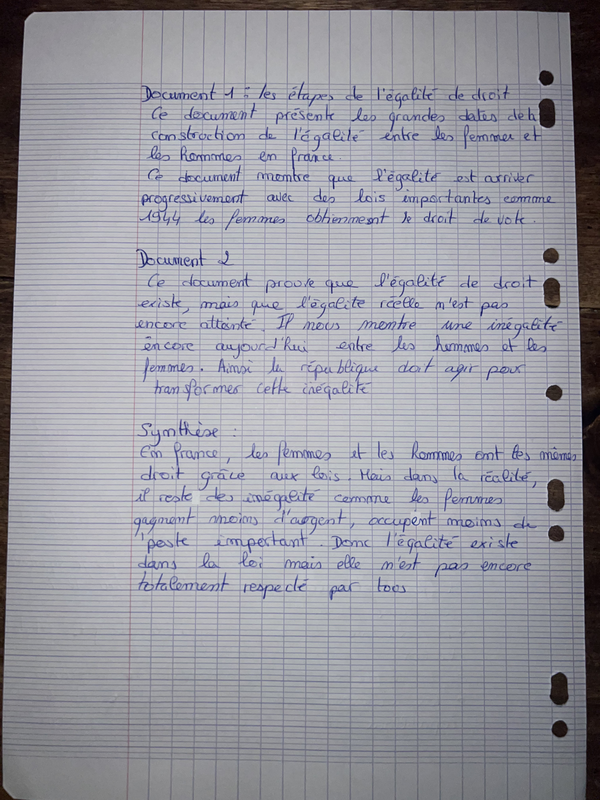 Document 1 : les étapes de l'égalité de droit
Ce document présente les grandes dates de la
construction de l'égalité entre les femmes et
les hommes en france.
Ce document montre que l'égalité est arriver
progressivement avec des lois importantes comme
1944 les femmes obtiennent le droit de vote.
Document 2
Ce document prouve que l'égalité de droit
existe, mais que l'égalité réelle n'est pas
encore atteinte. Il nous montre une inégalité
encore aujourd'hui entre les hommes et les
femmes. Ainsi la république doit agir pour
transformer cette inégalité
Synthèse :
En france, les femmes et les hommes ont les mêmes
droit grâce aux lois. Mais dans la réalité,
il reste des inégalité comme les femmes
gagnent moins d'argent, occupent moins de
poste important. Donc l'égalité existe
dans la loi mais elle n'est pas encore
totalement respecté par tous